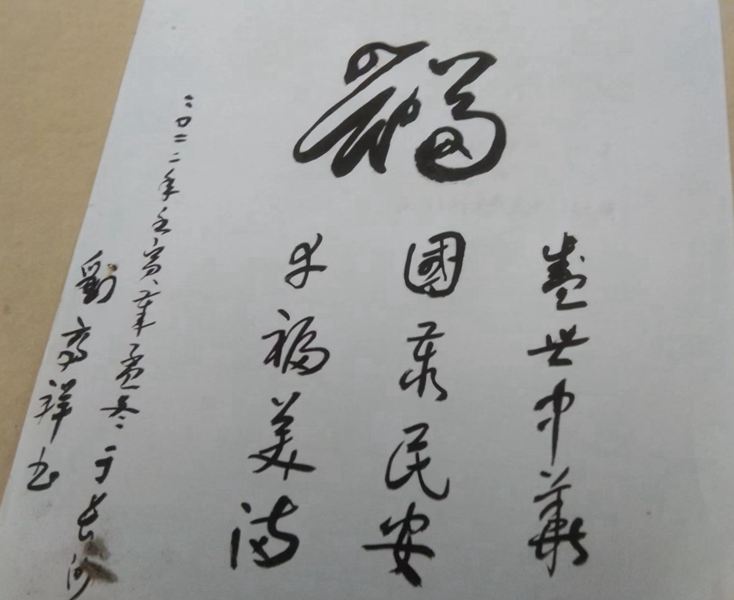 盛世中華
國泰民安
幸福美满
二〇二二年壬寅年孟冬于長沙
劉高祥书